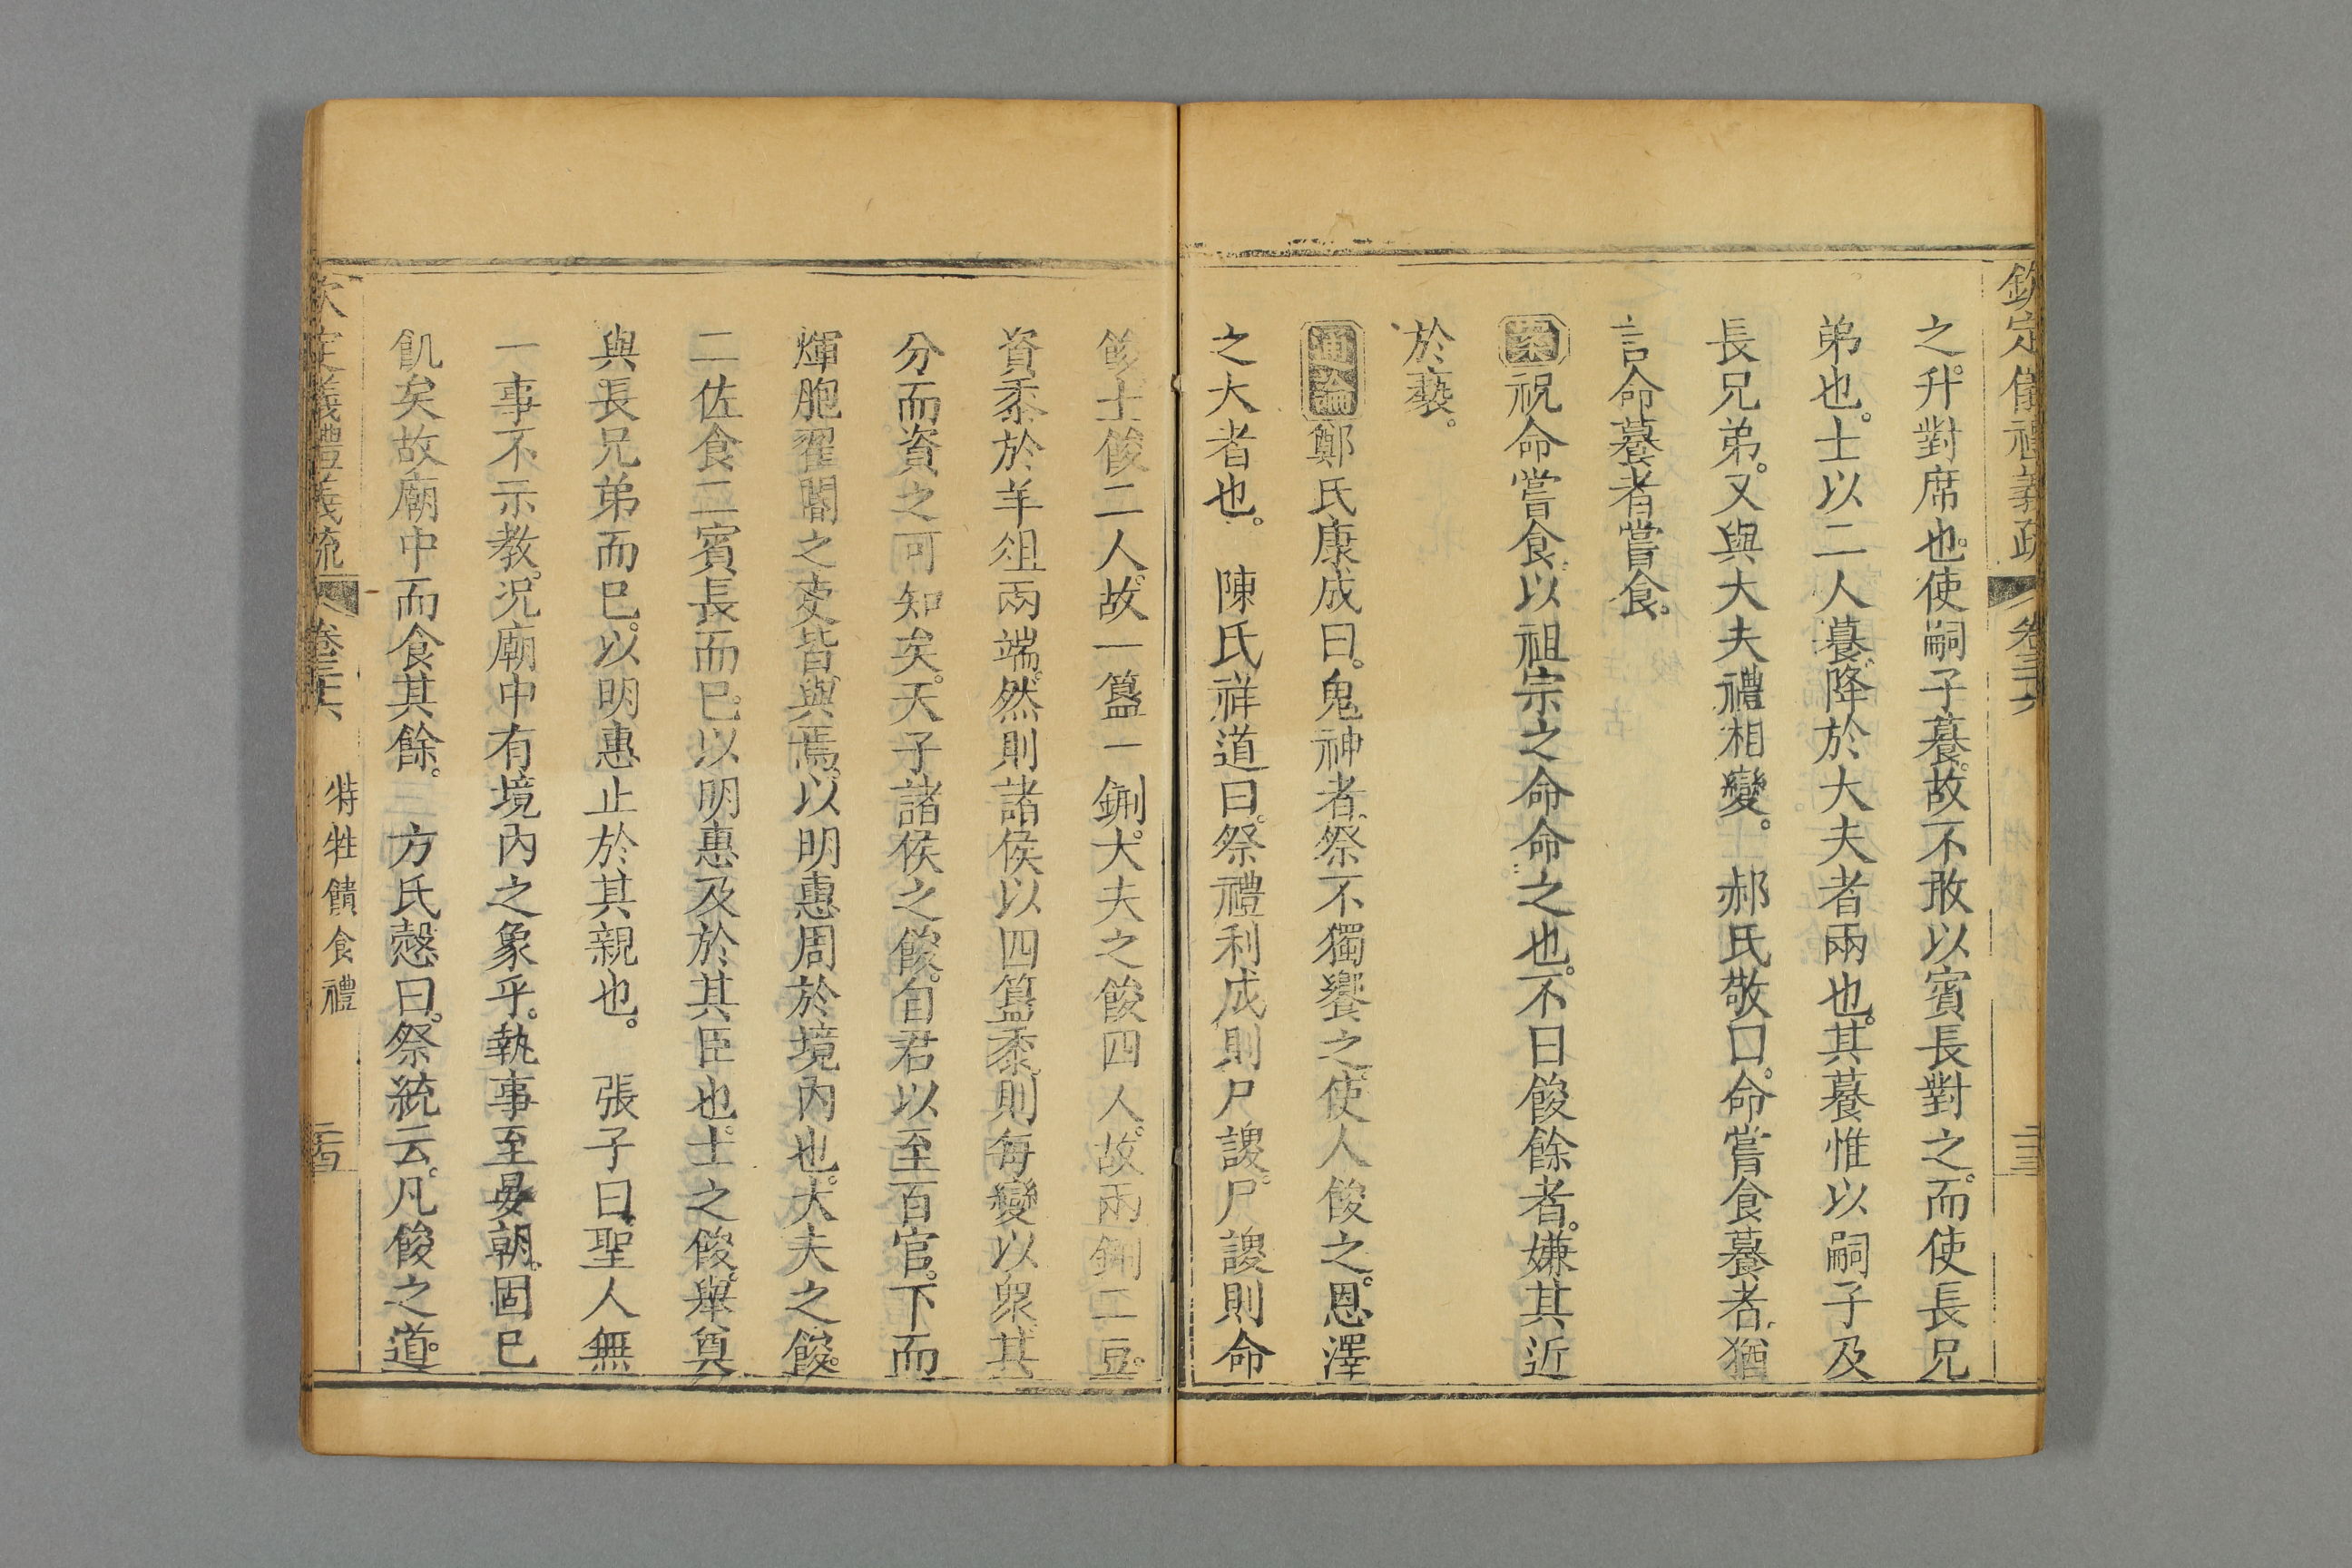 欽定儀禮義疏 卷三十六 三三
之升對席也使嗣子䕩故不敢以賓長對之而使長兄
弟也士以二人䕩降於大夫者兩也其䕩惟以嗣子及
長兄弟又與大夫禮相變 郝氏敬曰命嘗食䕩者猶
言命䕩者嘗食
案祝命嘗食以祖宗之命命之也不曰餕餘者嫌其近
於褻
通論鄭氏康成曰鬼神者祭不獨饗之使人餕之恩澤
之大者也 陳氏祥道曰祭禮利成則尸謖尸謖則命
餕士餕二人故一簋一鉶大夫之餕四人故兩鉶二豆
資黍於羊俎兩端然則諸侯以四簋黍則每變以衆其
分而資之可知矣天子諸侯之餕自君以至百官下而
煇胞翟閽之吏皆與焉以明惠周於境內也大夫之餕
二佐食二賓長而已以明惠及於其臣也士之餕舉奠
與長兄弟而已以明惠止於其親也 張子曰聖人無
一事不示教況廟中有境內之象乎執事至晏朝固已
飢矣故廟中而食其餘 方氏慤曰祭統云凡餕之道
欽定儀禮義疏 卷三十六 特牲饋食禮